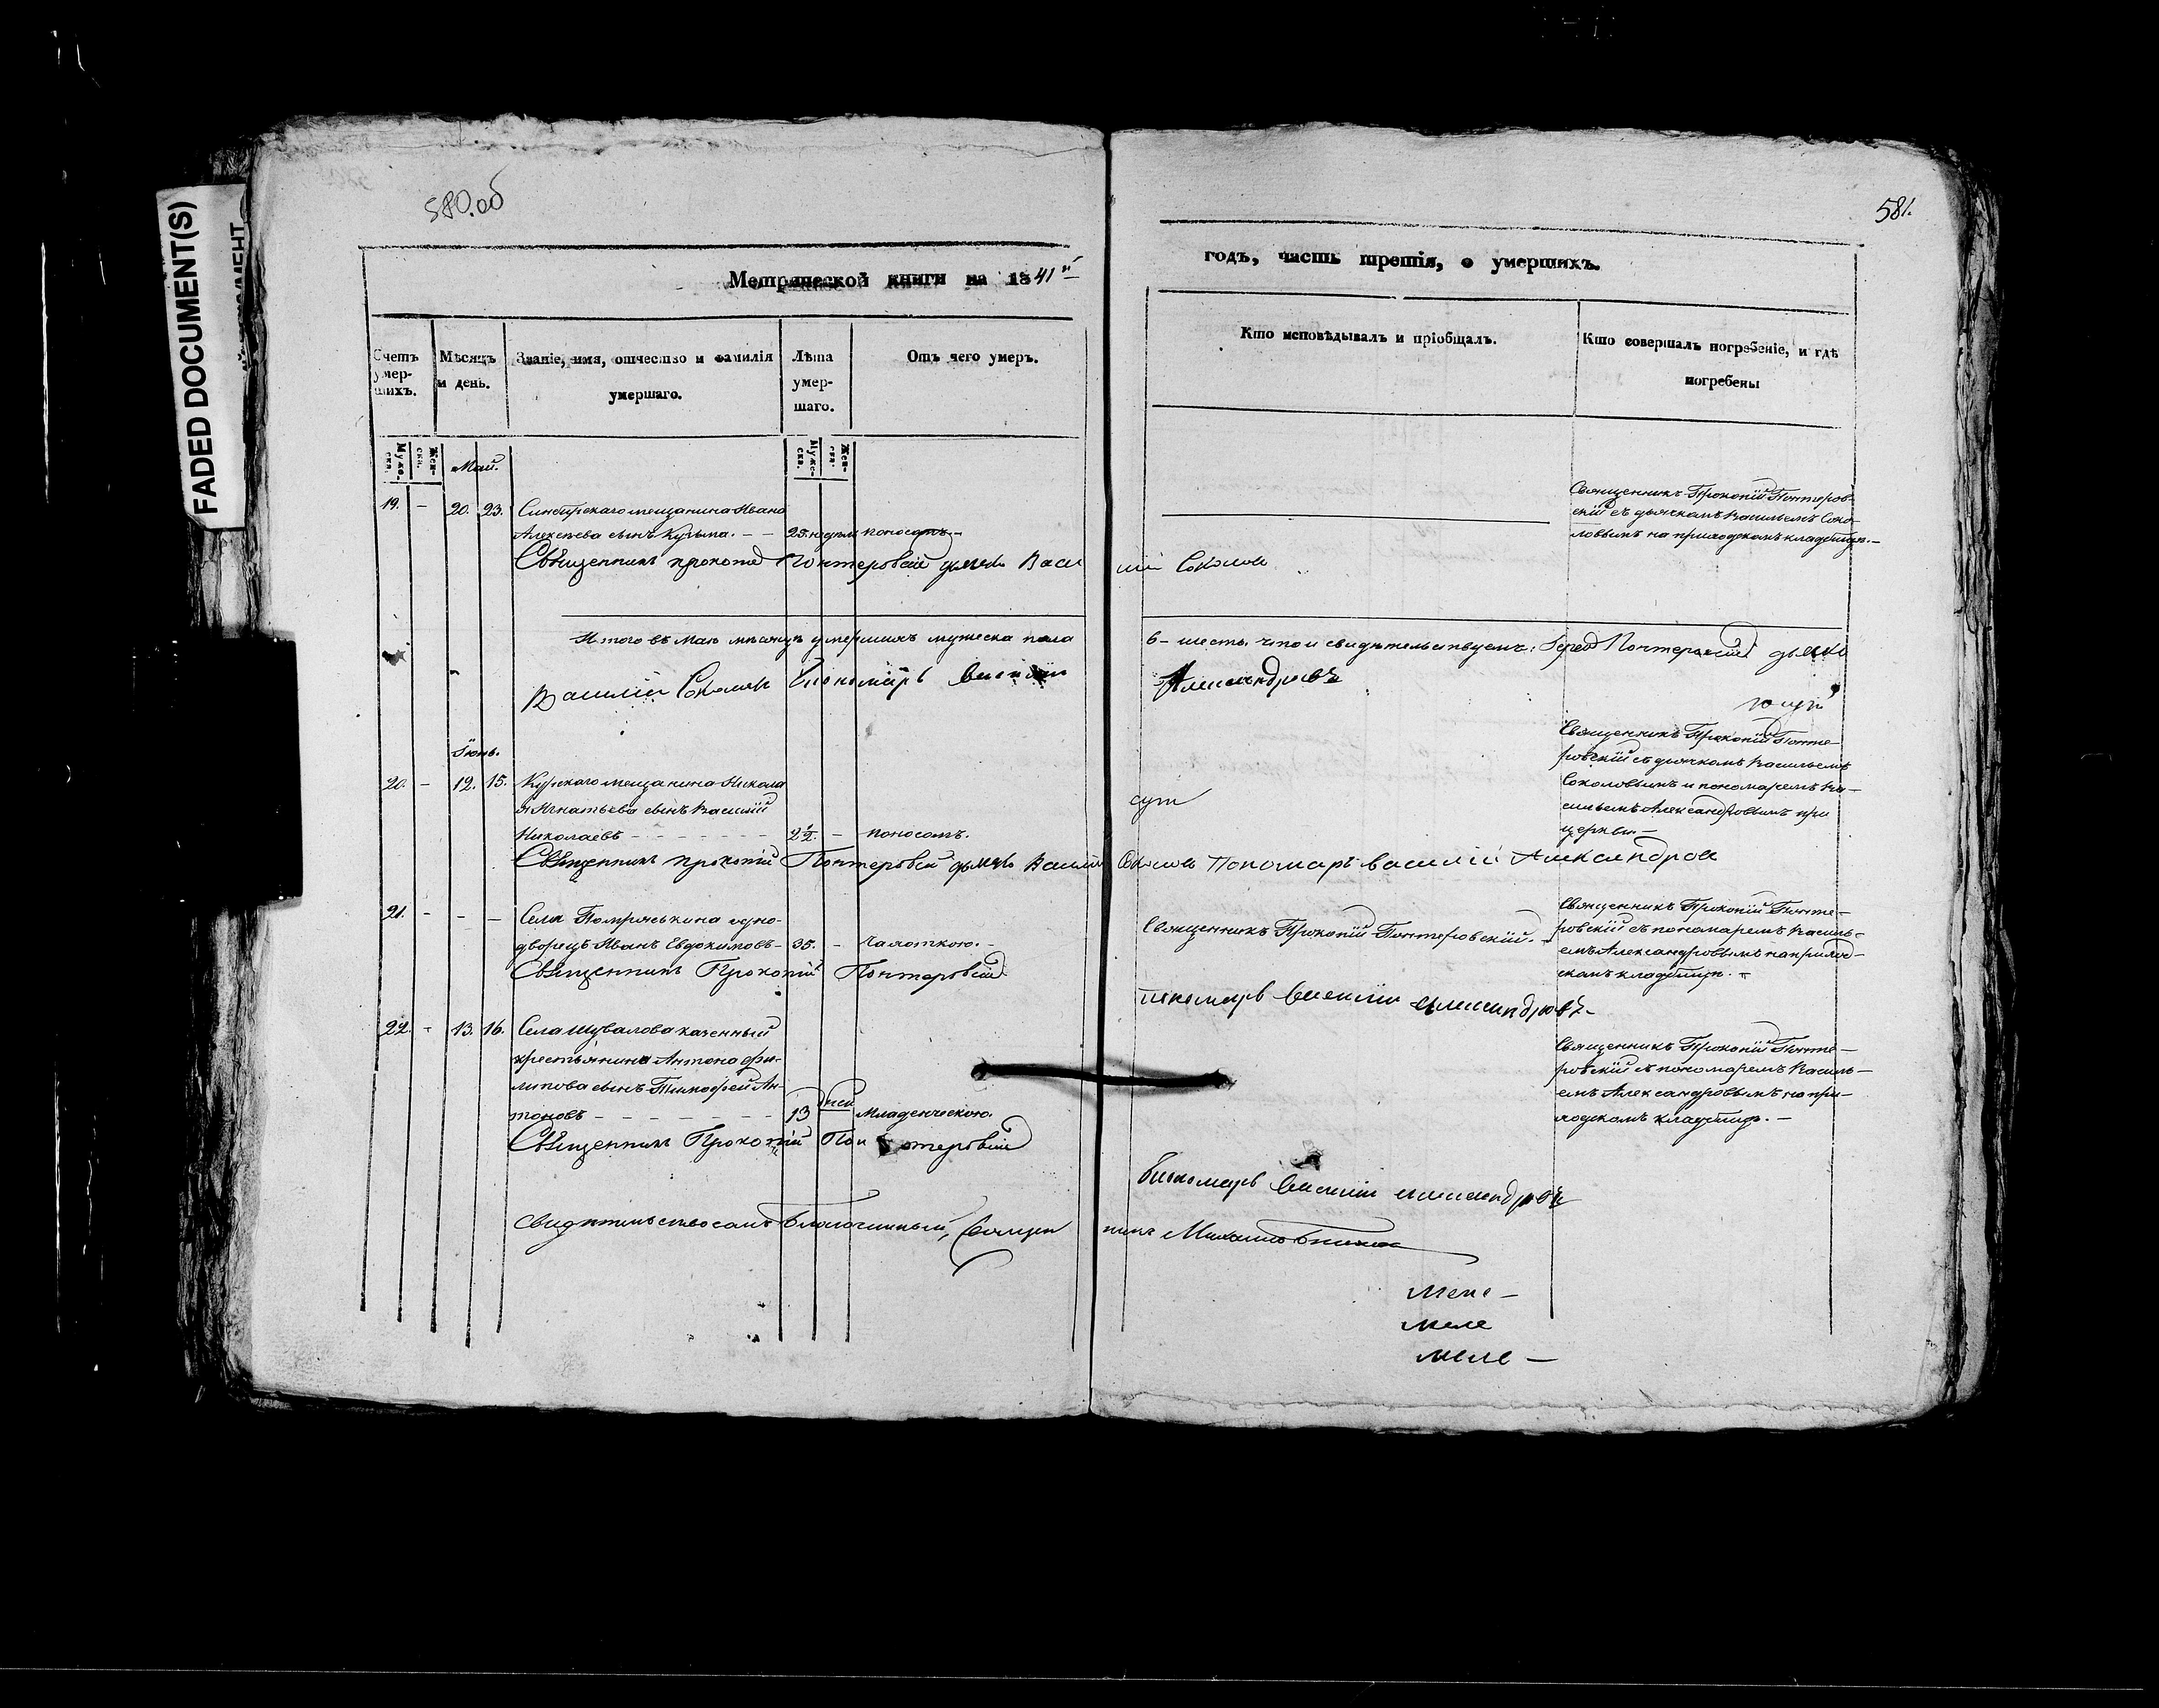 FADED DOCUMENT(S)
580.об
581.
Метрической книги на 1841й
годъ, часть третія, о умершихъ.
Счетъ умер-шихъ.
Мѣсяцъ и день.
Званіе, имя, отчество и фамилія умершаго.
Лѣта умер-шаго.
Отъ чего умеръ.
Кто исповѣдывалъ и пріобщалъ.
Кто совершалъ погребеніе, и гдѣ погребены
Муже-ска.
Жен-ска.
Муже-ска.
Жен-ска.
Май.
19. - 20. 23. Синбирскаго мещанина Ивана
Алексѣева сынъ Кузьма. - - 25. недѣль поносомъ -
Священникъ Прокопій Понтеров-
скій съ дьячкомъ Васильемъ Соко-
ловымъ на приходскомъ кладбищѣ. -
Священникъ Прокопій Понтеровскій дьячекъ Васи
лій Соколовъ
Итого въ маѣ мѣсяцѣ умершихъ мужеска пола
6 - шесть. что и свидѣтельствуемъ: Іерей Понтеровскій дьячекъ
Василій Соколовъ Пономарь Василій
Александровъ
Іюнь.
20. - 12. 15. Курскаго мещанина Никола
я Игнатьева сынъ Василій
Николаевъ - - - - - - 2½. - поносомъ.
Священникъ Прокопій Понте-
ровскій съ дьячкомъ Васильемъ
Соколовымъ и пономаремъ Ва-
сильемъ Александровымъ при
церкви. -
Священникъ Прокопій Понтеровскій дьячекъ Василій Соколовъ Пономарь Василій Александровъ
21. - - - Села Помряськина одно-
дворецъ Иванъ Евдокимовъ - 35. - Чахоткою. -
Священникъ Прокопій Понтеровскій. -
Священникъ Прокопій Понте-
ровскій съ пономаремъ Василь-
емъ Александровымъ на приход-
скомъ кладбищѣ. -
Священникъ Прокопій Понтеровскій
пономарь Василій Александровъ -
22. - 13. 16. Села Шувалова казенный
крестьянина Антона Фи-
липова сынъ Тимофей Ан-
тоновъ - - - - - - - 13 дней младенческою.
Священникъ Прокопій Понте-
ровскій съ пономаремъ Василь-
емъ Александровымъ на при-
ходскомъ кладбищѣ. -
Священникъ Прокопій Понтеровскій
Пономарь Василій Александровъ
Свидѣтельствовалъ Благочинный, Священ
никъ Михаилъ